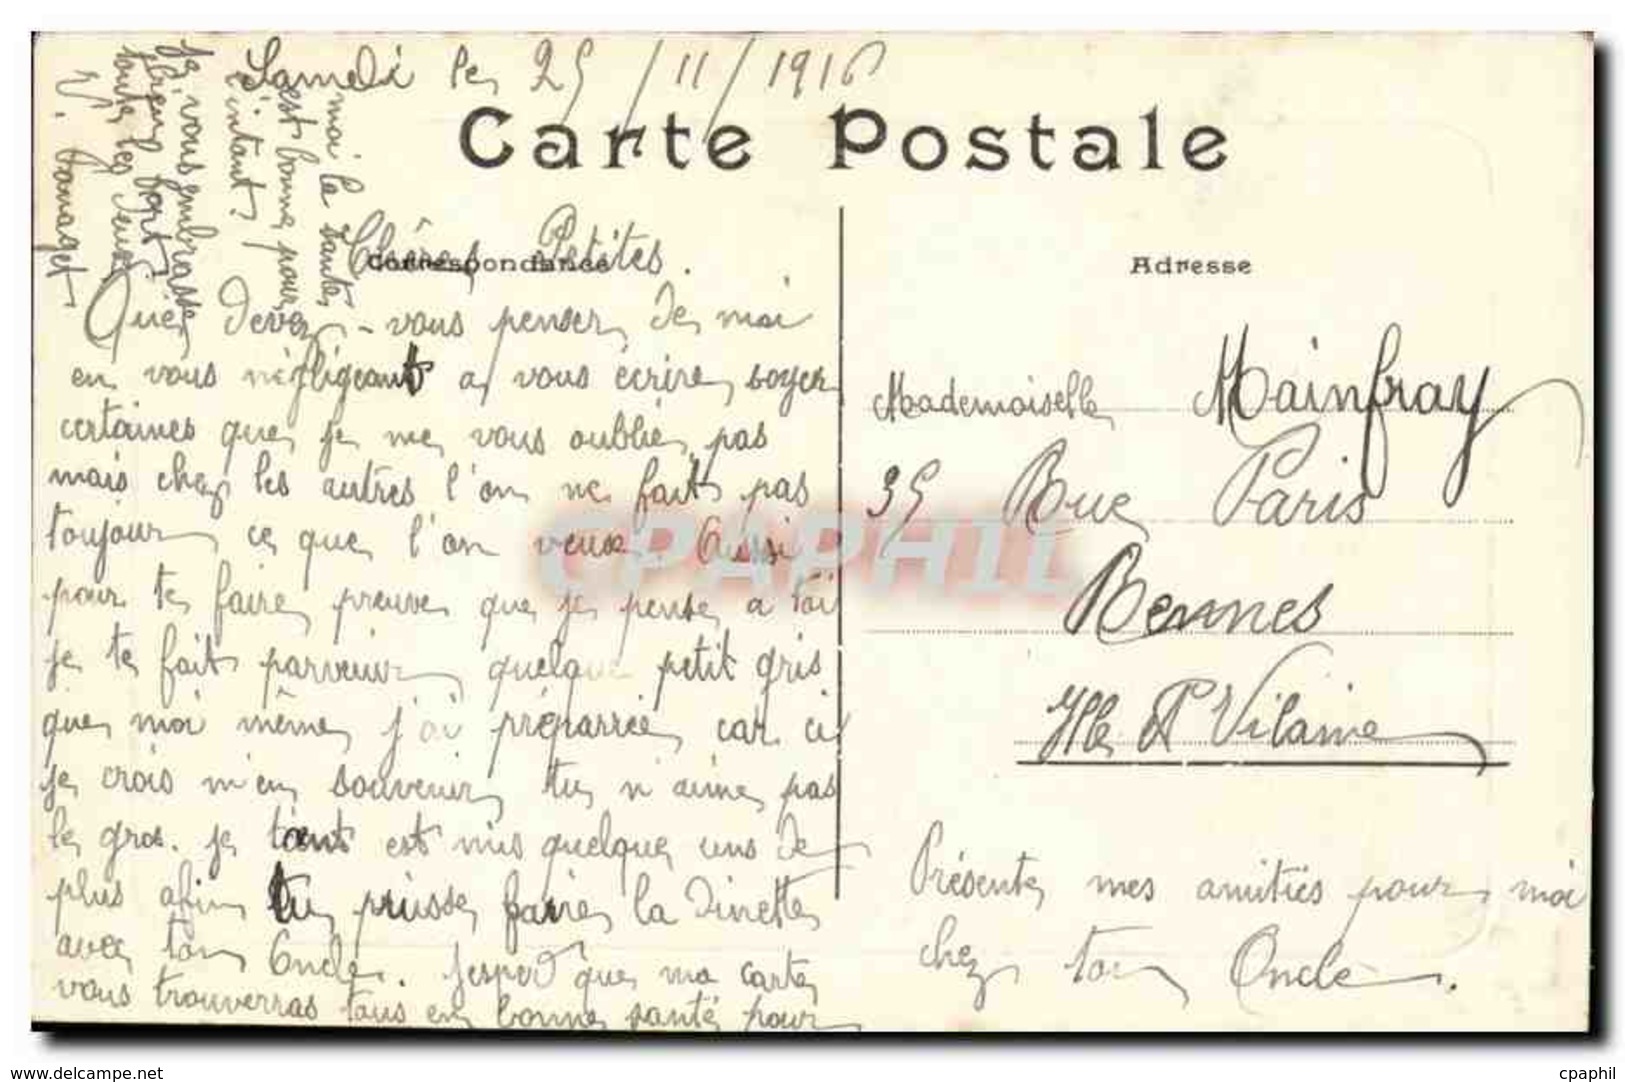 Samedi le 25/11/1916
Carte Postale
Correspondance
Adresse
Chères Petites.
Que devez-vous penser de moi
en vous négligeant a vous écrire, soyez
certaines que je ne vous oublie pas
mais chez les autres l'on ne fait pas
toujour ce que l'on veux. Aussi
pour te faire preuve que je pense a toi
je te fait parvenir quelque petit gris
que moi même j'ai préparrée car ci
je crois m'en souvenir tu n'aime pas
le gros. je tant est mis quelque uns de
plus afin tu puisse faire la dinette
avec ton Oncle. J'esper que ma carte
vous trouverras tous en bonne santé pour
moi la santé
est bonne pour
l'intant.
Je vous embrasse
bien fort
toute les deux
Mademoiselle Mainfray
35 Rue Paris
Rennes
Ille et Vilaine
Présente mes amitiés pour moi
chez ton Oncle.
CPAPHIL
www.delcampe.net
cpaphil